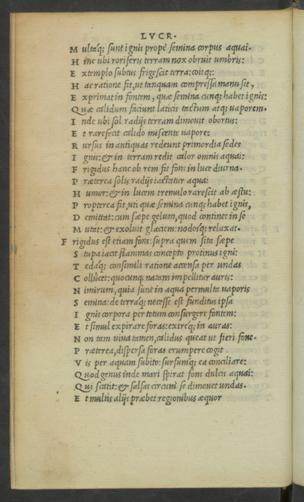 LVCR.
Multaq; sunt ignis prope semina corpus aquai.
Hinc ubi roriferis terram nox obruit umbris:
Extemplo subtus frigescit terra: coitq;:
Hac ratione fit, ut tanquam compressa manu sit,
Exprimat in fontem, quæ semina cunq; habet ignis:
Quæ calidum faciunt laticis tactum atq; uaporem.
Inde ubi sol radijs terram dimouit obortus:
Et rarefecit calido miscente uapore:
Rursus in antiquas redeunt primordia sedes
Ignis: & in terram redit calor omnis aquai:
Frigidus hanc ob rem fit fons in luce diurna.
Præterea solis radijs iactatur aquai
Humor: & in lucem tremulo rarescit ab æstu:
Propterea fit, uti quæ semina cunq; habet ignis,
Demittat: cum sæpe gelum, quod continet in se
Mittit: & exoluit glaciem: nodosq; relaxat.
Frigidus est etiam fons: supra quem sita sæpe
Stupa iacit flammam concepto protinus igni:
Tedaq; consimili ratione accensa per undas
Collucet: quocunq; natans impellitur auris:
Nimirum, quia sunt in aqua permulta uaporis
Semina: de terraq; necesse est funditus ipsa
Ignis corpora per totum consurgere fontem:
Et simul expirare foras: exireq; in auras:
Non tam uiua tamen, calidus queat ut fieri fons.
Præterea, dispersa foras erumpere cogit
Vis per aquam subito: sursumq; ea conciliare:
Quod genus inde mari spirat fons dulcis aquai:
Qui scatit: & salsas circum se dimouet undas.
Et multis alijs præbet regionibus æquor